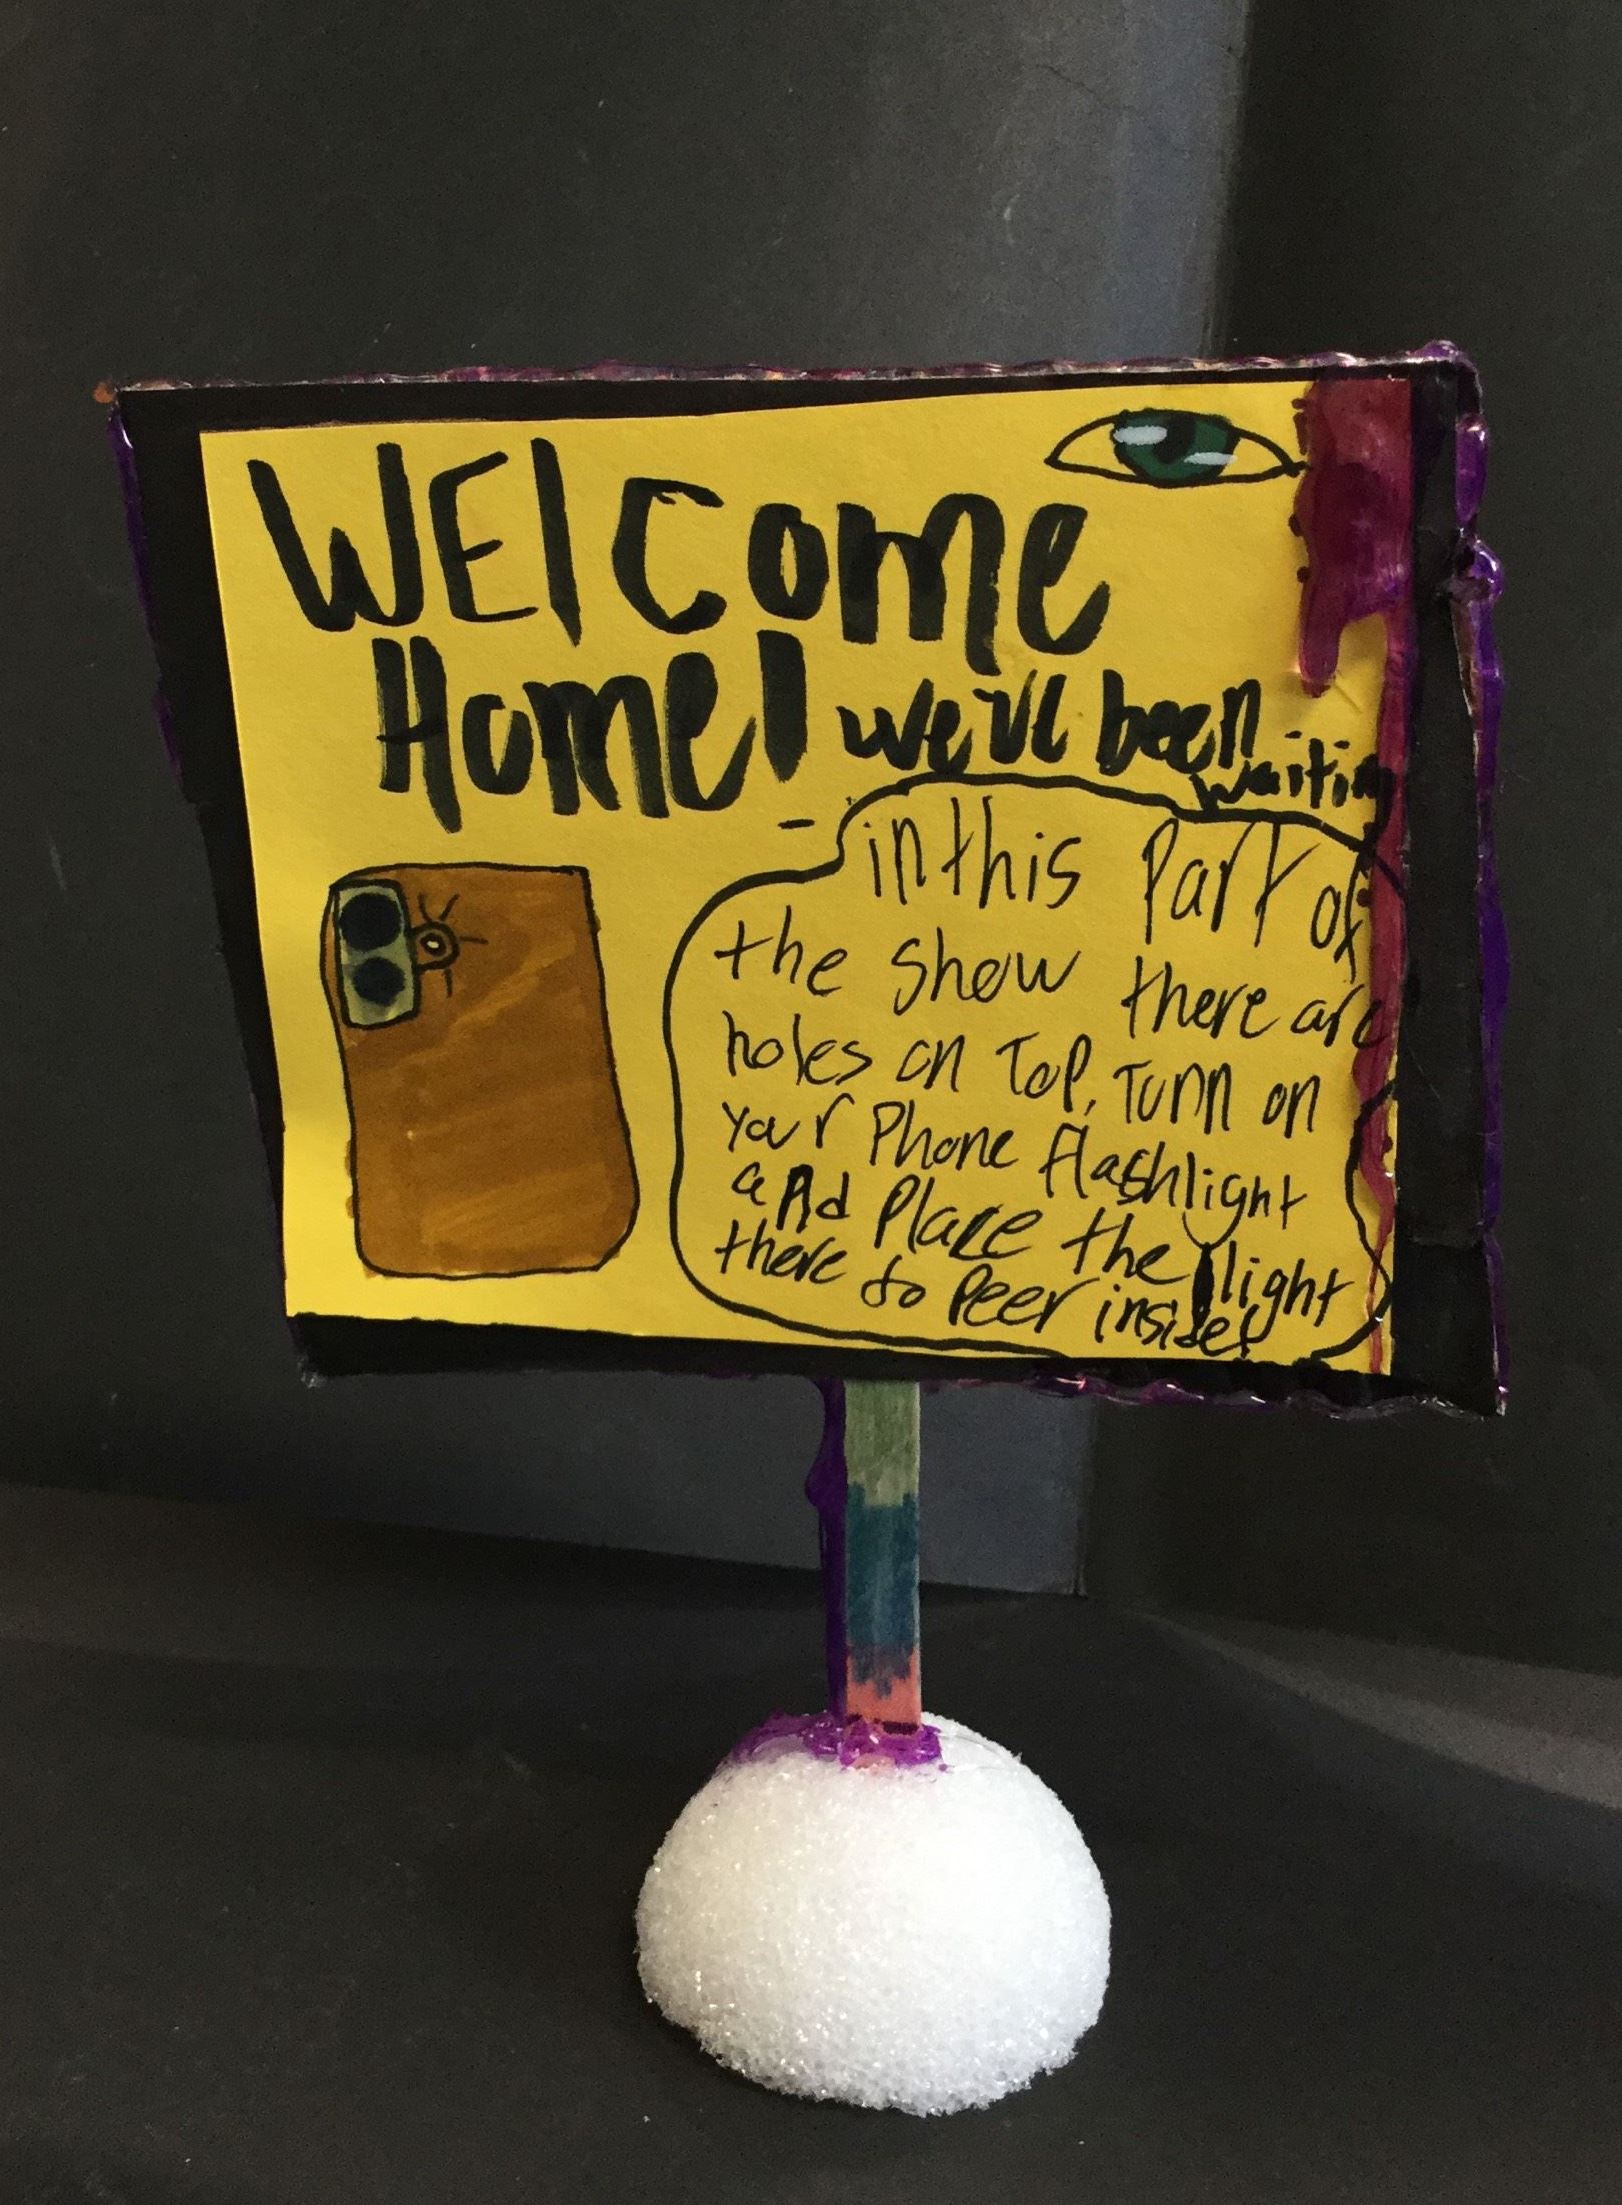 WElcome
Home! we've been
waiting
in this Part of
the show there are
holes on Top, Turn on
your Phone flashlight
and Place the light
there to Peer inside!